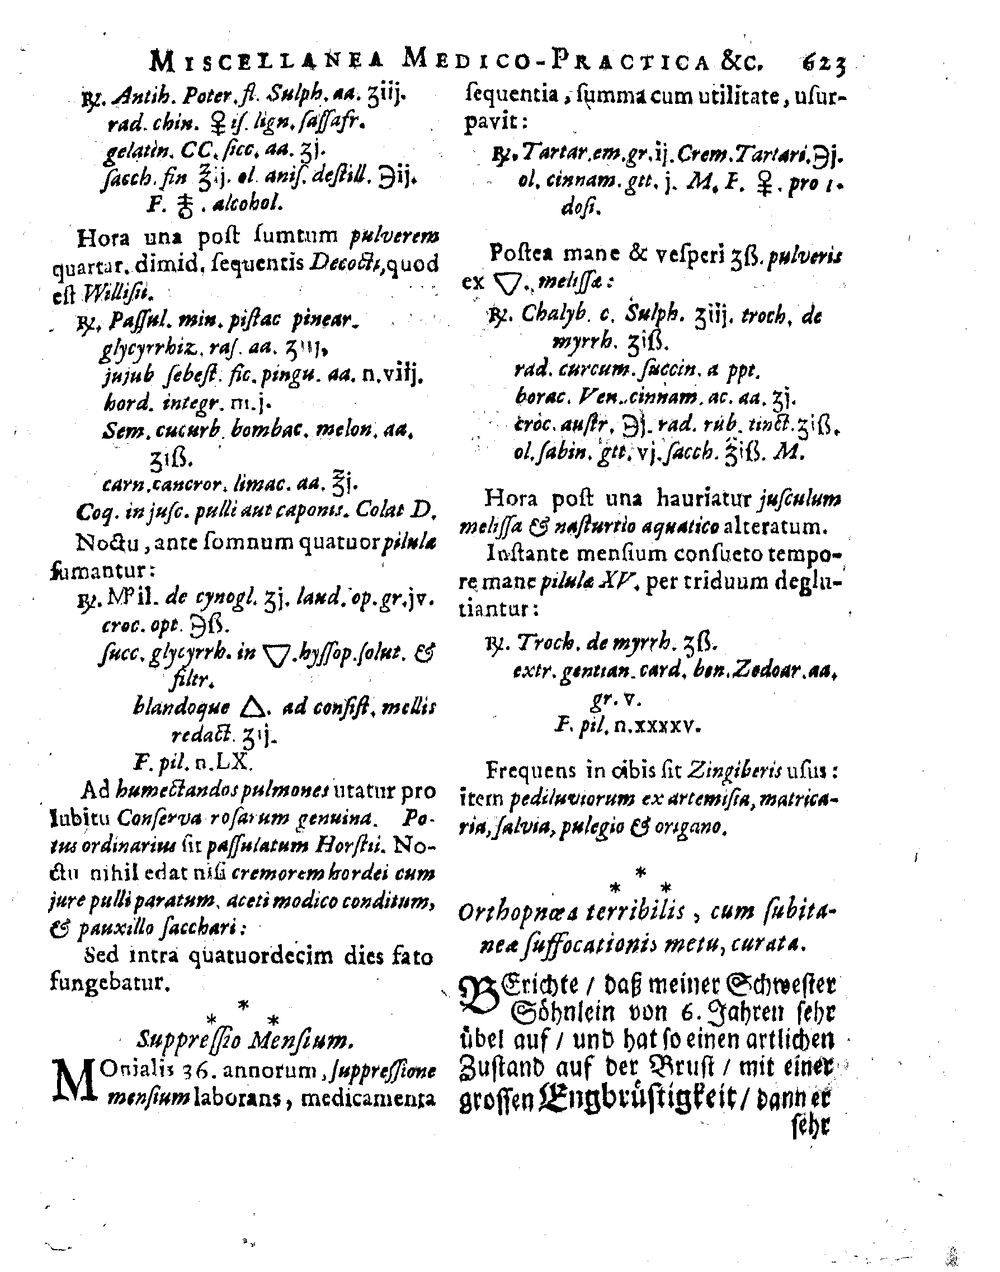 MISCELLANEA MEDICO-PRACTICA &c. 623
℞. Antih. Poter. fl. Sulph. aa. ʒiij.
rad. chin. ♀ is. lign. ſaſſafr.
gelatin. CC. ſicc. aa. ʒj.
ſacch. fin ℥ij. ol. aniſ. deſtill. ℈ij.
F. . alcohol.
Hora una poſt ſumtum pulverem
quartar. dimid. ſequentis Decocti, quod
eſt Willisii.
℞. Paſſul. min. piſtac pinear.
glycyrrhiz. raſ. aa. ʒiij,
jujub ſebeſt. fic. pingu. aa. n. viij.
hord. integr. m. j.
Sem. cucurb. bombac. melon. aa.
ʒiß.
carn. cancror. limac. aa. ℥j.
Coq. in juſc. pulli aut caponis. Colat D.
Noctu, ante ſomnum quatuor pilulæ
ſumantur:
℞. Mſſ. Pil. de cynogl. ʒj. laud. op. gr. jv.
croc. opt. ℈ß.
ſucc. glycyrrh. in ▽. hyſſop. ſolut. &
filtr.
blandoque △. ad conſiſt. mellis
redact. ʒij.
F. pil. n. LX.
Ad humectandos pulmones utatur pro
lubitu Conſerva roſarum genuina. Po-
tus ordinarius ſit paſſulatum Horſtii. No-
ctu nihil edat niſi cremorem hordei cum
jure pulli paratum, aceti modico conditum,
& pauxillo ſacchari:
Sed intra quatuordecim dies fato
fungebatur.
*
* *
Suppreſſio Menſium.
MOnialis 36. annorum, ſuppreſſione
menſium laborans, medicamenta
ſequentia, ſumma cum utilitate, uſur-
pavit:
℞. Tartar. em. gr. ij. Crem. Tartari. ℈j.
ol. cinnam. gtt. j. M. F. . pro 1.
doſi.
Poſtea mane & veſperi ʒß. pulveris
ex ▽. meliſſæ:
℞. Chalyb. c. Sulph. ʒiij. troch. de
myrrh. ʒiß.
rad. curcum. ſuccin. a ppt.
borac. Ven. cinnam. ac. aa. ʒj.
croc. auſtr. ℈j. rad. rub. tinct. ʒiß.
ol. ſabin. gtt. vj. ſacch. ℥iß. M.
Hora poſt una hauriatur juſculum
meliſſa & naſturtio aquatico alteratum.
Inſtante menſium conſueto tempo-
re mane pilulæ XV. per triduum deglu-
tiantur:
℞. Troch. de myrrh. ʒß.
extr. gentian. card. ben. Zedoar. aa.
gr. v.
F. pil. n. xxxxv.
Frequens in cibis ſit Zingiberis uſus:
item pediluviorum ex artemiſia, matrica-
ria, ſalvia, pulegio & origano.
*
* *
Orthopnœa terribilis, cum ſubita-
neæ ſuffocationis metu, curata.
BErichte / daß meiner Schweſter
Söhnlein von 6. Jahren ſehr
übel auf / und hat ſo einen artlichen
Zuſtand auf der Bruſt / mit einer
groſſen Engbrüſtigkeit / dann er
ſehr